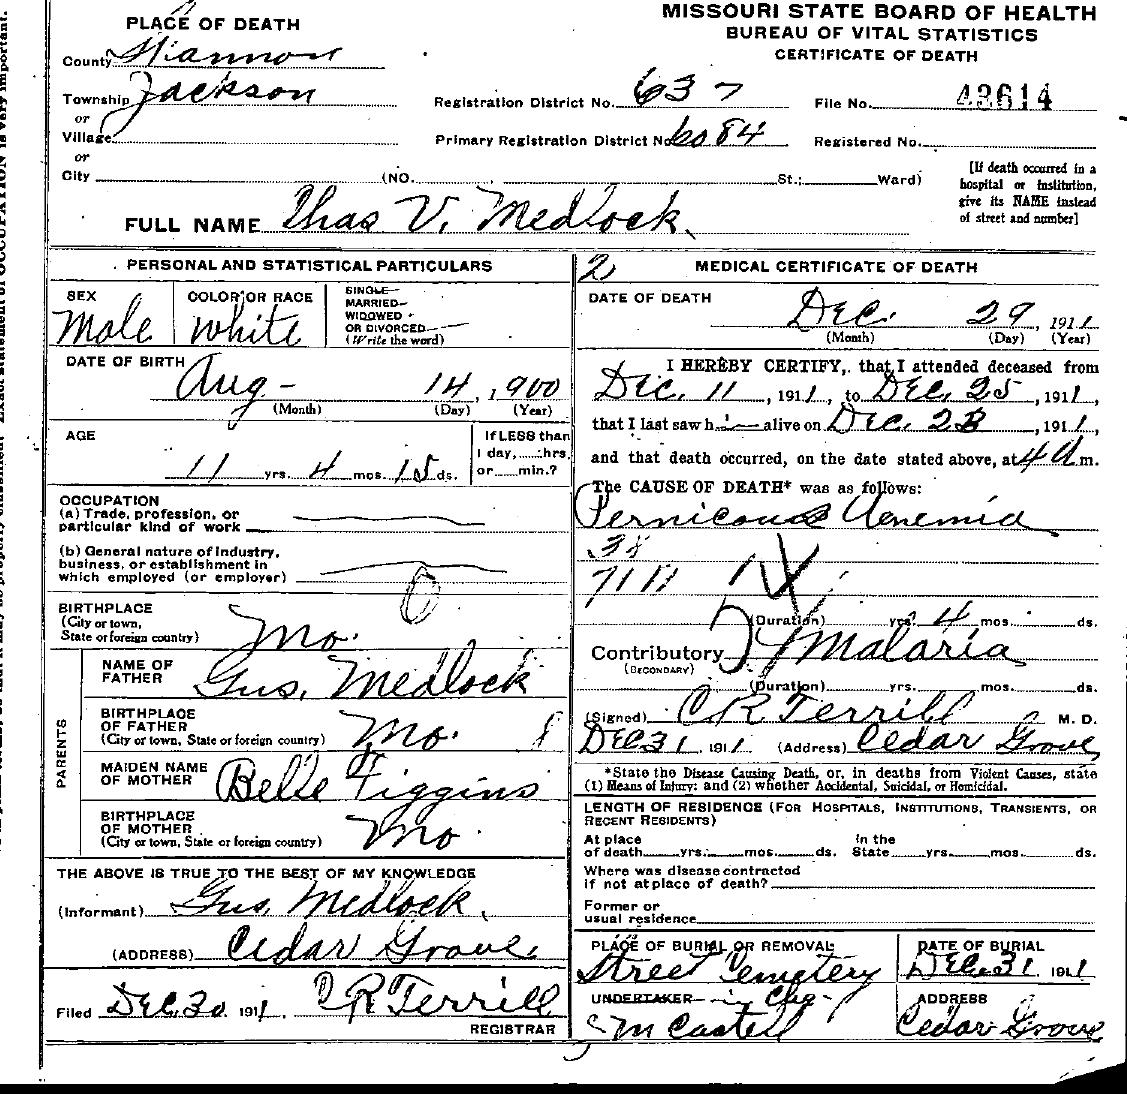 PLACE OF DEATH
County Shannon
Township Jackson
or
Village
or
City (NO. St.; Ward)
MISSOURI STATE BOARD OF HEALTH
BUREAU OF VITAL STATISTICS
CERTIFICATE OF DEATH
Registration District No. 637 File No. 43614
Primary Registration District No. 6084 Registered No.
[If death occurred in a
hospital or institution,
give its NAME instead
of street and number]
FULL NAME Chas V. Medlock
PERSONAL AND STATISTICAL PARTICULARS
SEX
Male
COLOR OR RACE
White
SINGLE
MARRIED
WIDOWED
OR DIVORCED
(Write the word)
DATE OF BIRTH
Aug 14, 1900
(Month) (Day) (Year)
AGE
11 yrs. 4 mos. 15 ds.
If LESS than
1 day, hrs.
or min.?
OCCUPATION
(a) Trade, profession, or
particular kind of work
(b) General nature of industry,
business, or establishment in
which employed (or employer)
BIRTHPLACE
(City or town,
State or foreign country) Mo.
PARENTS
NAME OF
FATHER Gus. Medlock
BIRTHPLACE
OF FATHER
(City or town, State or foreign country) Mo.
MAIDEN NAME
OF MOTHER Belle Figgins
BIRTHPLACE
OF MOTHER
(City or town, State or foreign country) Mo
THE ABOVE IS TRUE TO THE BEST OF MY KNOWLEDGE
(Informant) Gus. Medlock
(ADDRESS) Cedar Grove
Filed Dec. 30 1911. C R Terrill
REGISTRAR
2 MEDICAL CERTIFICATE OF DEATH
DATE OF DEATH
Dec. 29, 1911
(Month) (Day) (Year)
I HEREBY CERTIFY, that I attended deceased from
Dec. 11, 1911, to Dec. 25, 1911,
that I last saw h i— alive on Dec. 23, 1911,
and that death occurred, on the date stated above, at 4 a m.
The CAUSE OF DEATH* was as follows:
Pernicous Aenemia
(Duration) yrs. 4 mos. ds.
Contributory Malaria
(SECONDARY)
(Duration) yrs. mos. ds.
(Signed) C R Terrill M. D.
Dec 31, 1911 (Address) Cedar Grove
*State the Disease Causing Death, or, in deaths from Violent Causes, state
(1) Means of Injury; and (2) whether Accidental, Suicidal, or Homicidal.
LENGTH OF RESIDENCE (FOR HOSPITALS, INSTITUTIONS, TRANSIENTS, OR
RECENT RESIDENTS)
At place In the
of death yrs. mos. ds. State yrs. mos. ds.
Where was disease contracted
if not at place of death?
Former or
usual residence
PLACE OF BURIAL OR REMOVAL
Street Cemetery
DATE OF BURIAL
Dec. 31 1911
UNDERTAKER in Chg
S M Castell
ADDRESS
Cedar Grove